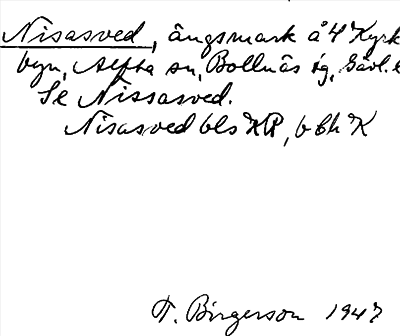 Nisasved, ängsmark å 4 Kyrk
byn, Alfta sn, Bollnäs tg, Gävl. l
Se Nissasved.
Nisasved bls KP, b Ch K
T. Birgerson 1947